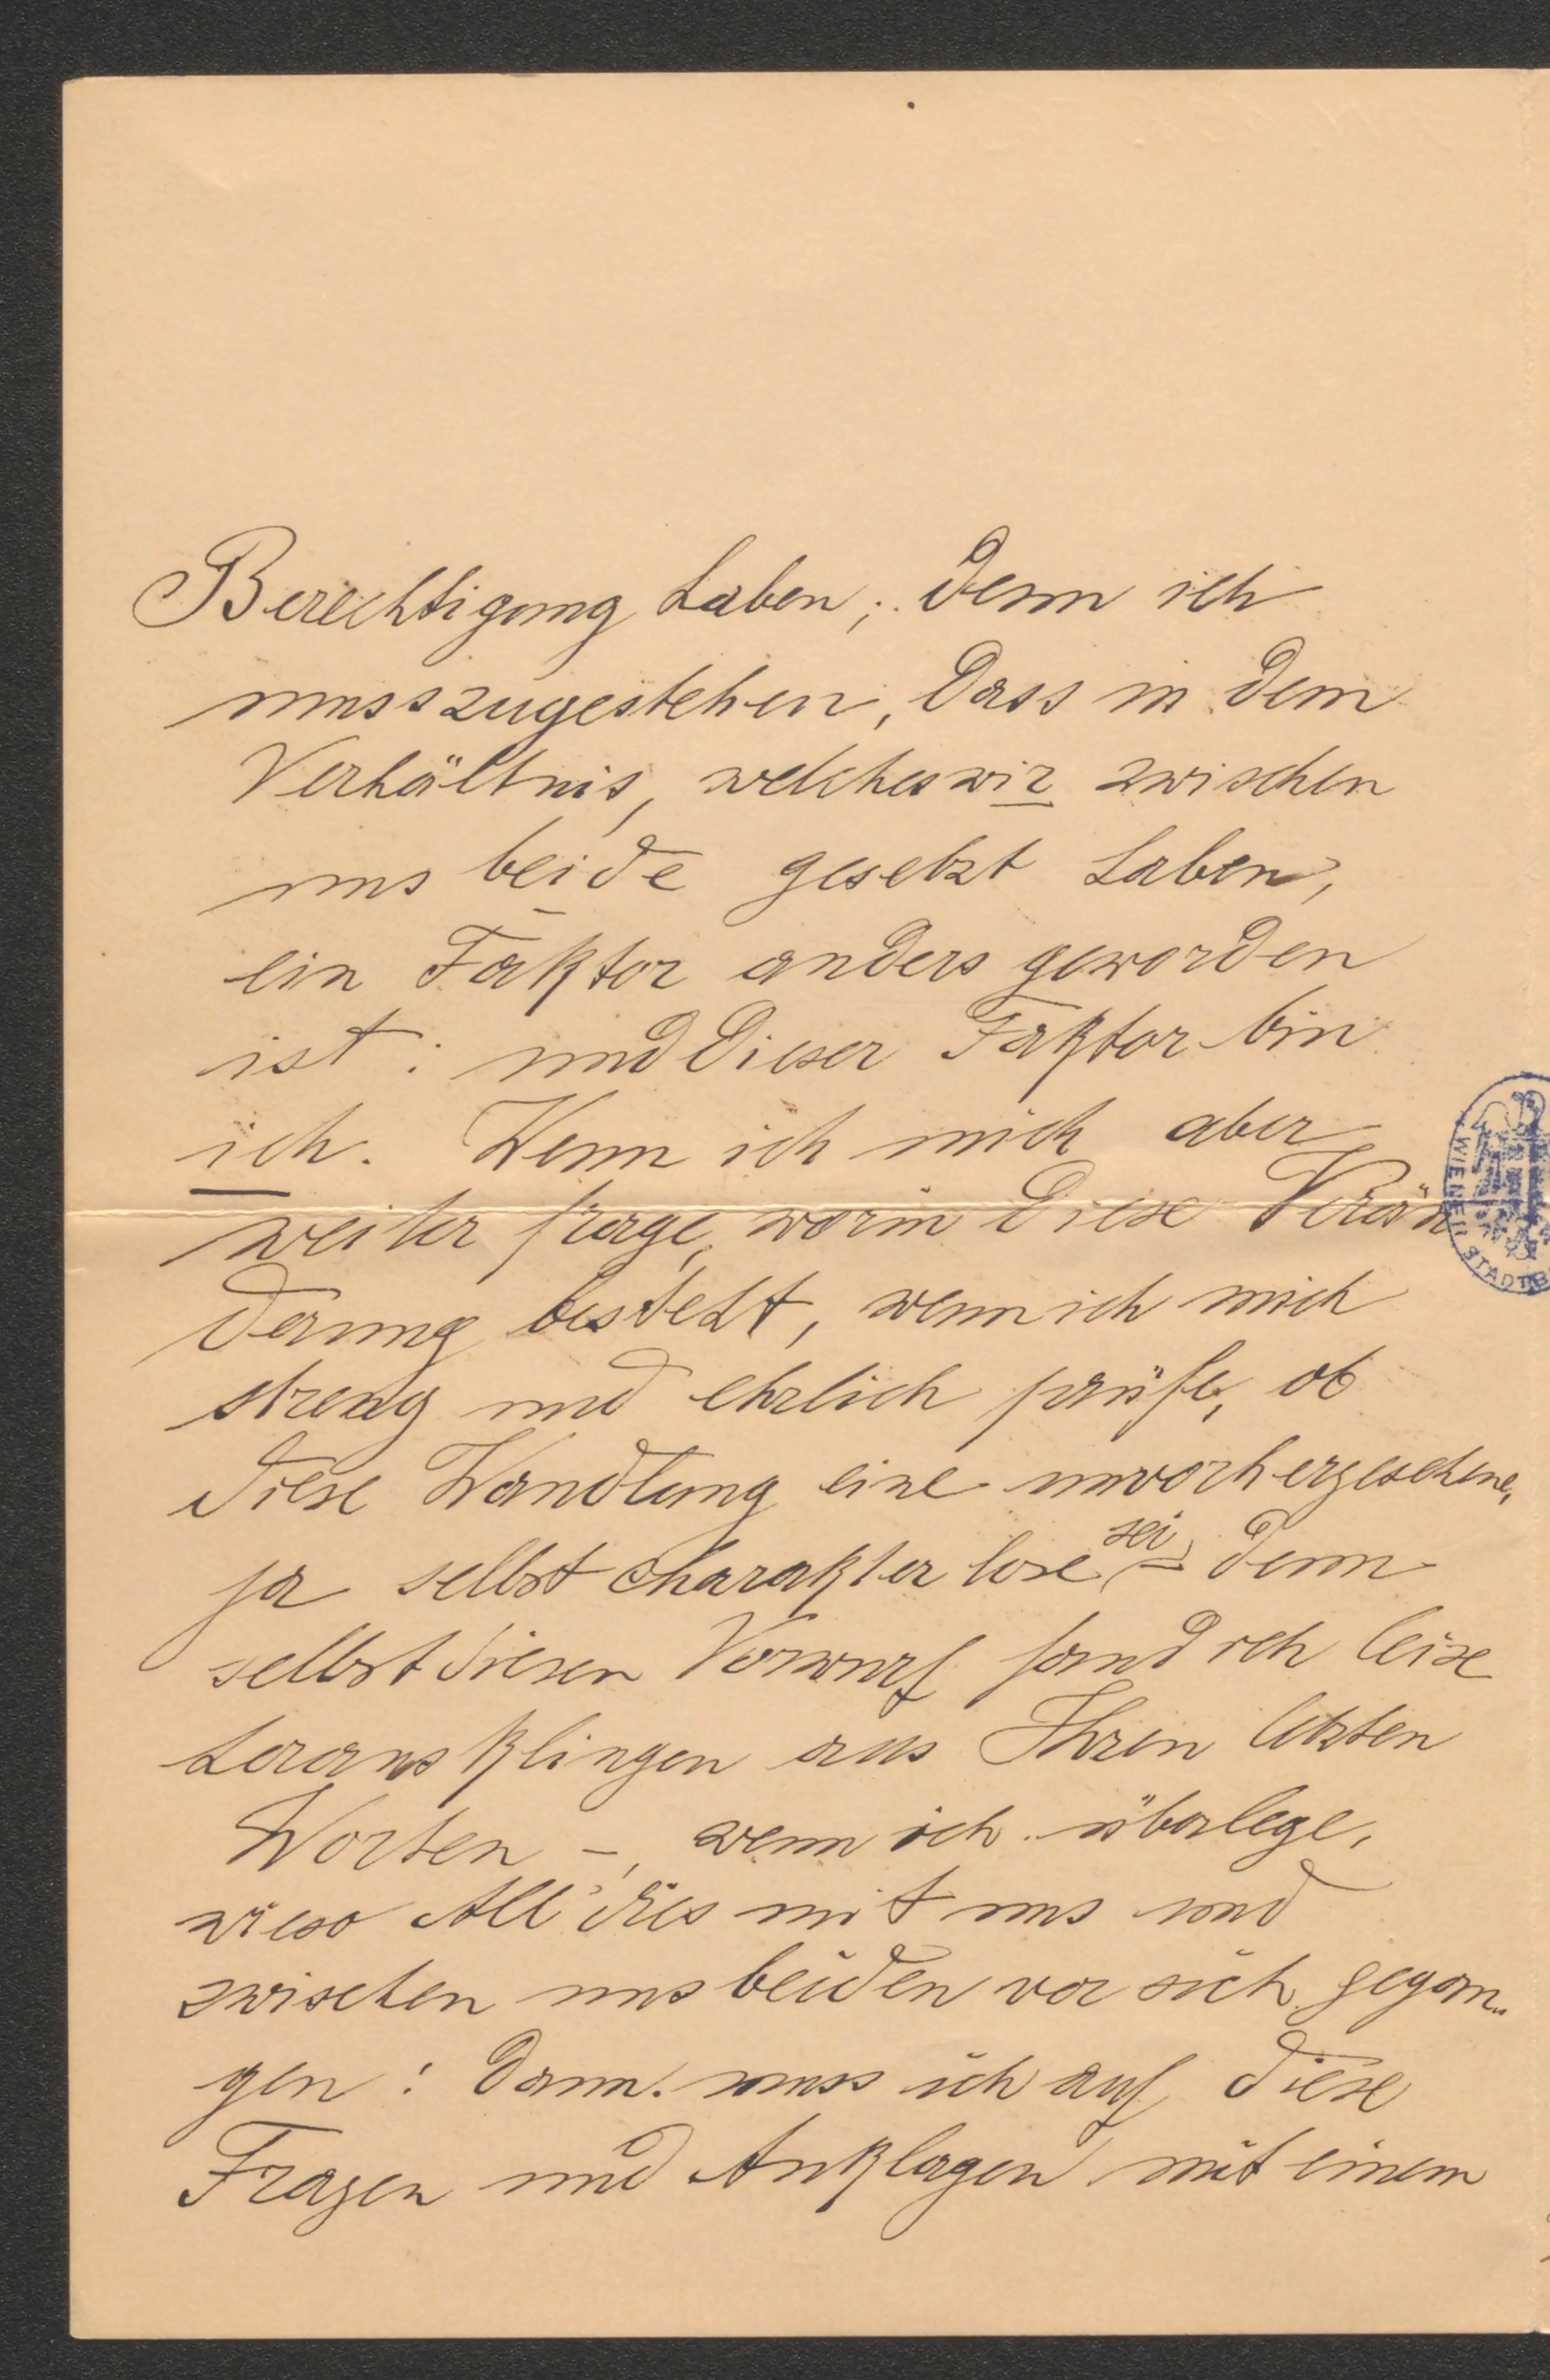 Berechtigung haben; denn ich
muss zugestehen, dass in dem
Verhältnis, welches wir zwischen
uns beide gesetzt haben,
ein Faktor anders geworden
ist: und dieser Faktor bin
ich. Wenn ich mich aber
weiter frage, worin diese Verän
derung besteht, wenn ich mich
streng und ehrlich prüfe, ob
diese Wandlung eine unvorhergesehene,
ja selbst charakterlose sei – denn
selbst diesen Vorwurf fand ich leise
herausklingen aus Ihren letzten
Worten –, wenn ich überlege,
wieso All' dies mit uns und
zwischen uns beiden vor sich gegan-
gen: dann muss ich auf diese
Fragen und Anklagen mit einem
WIENER STADTB